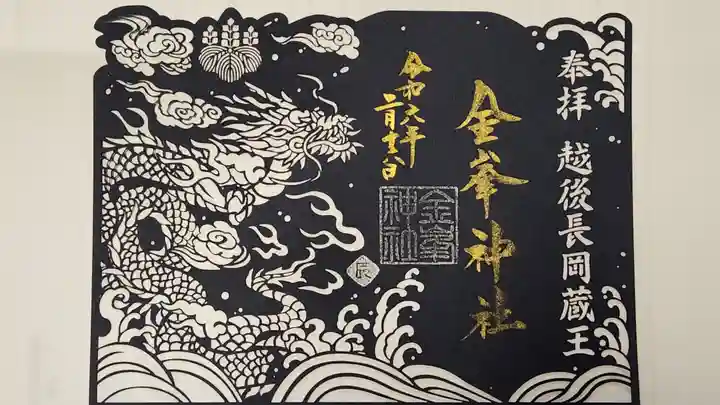 奉拝 越後長岡蔵王
金峯神社
令和六年
二月十八日
金峯神社
辰